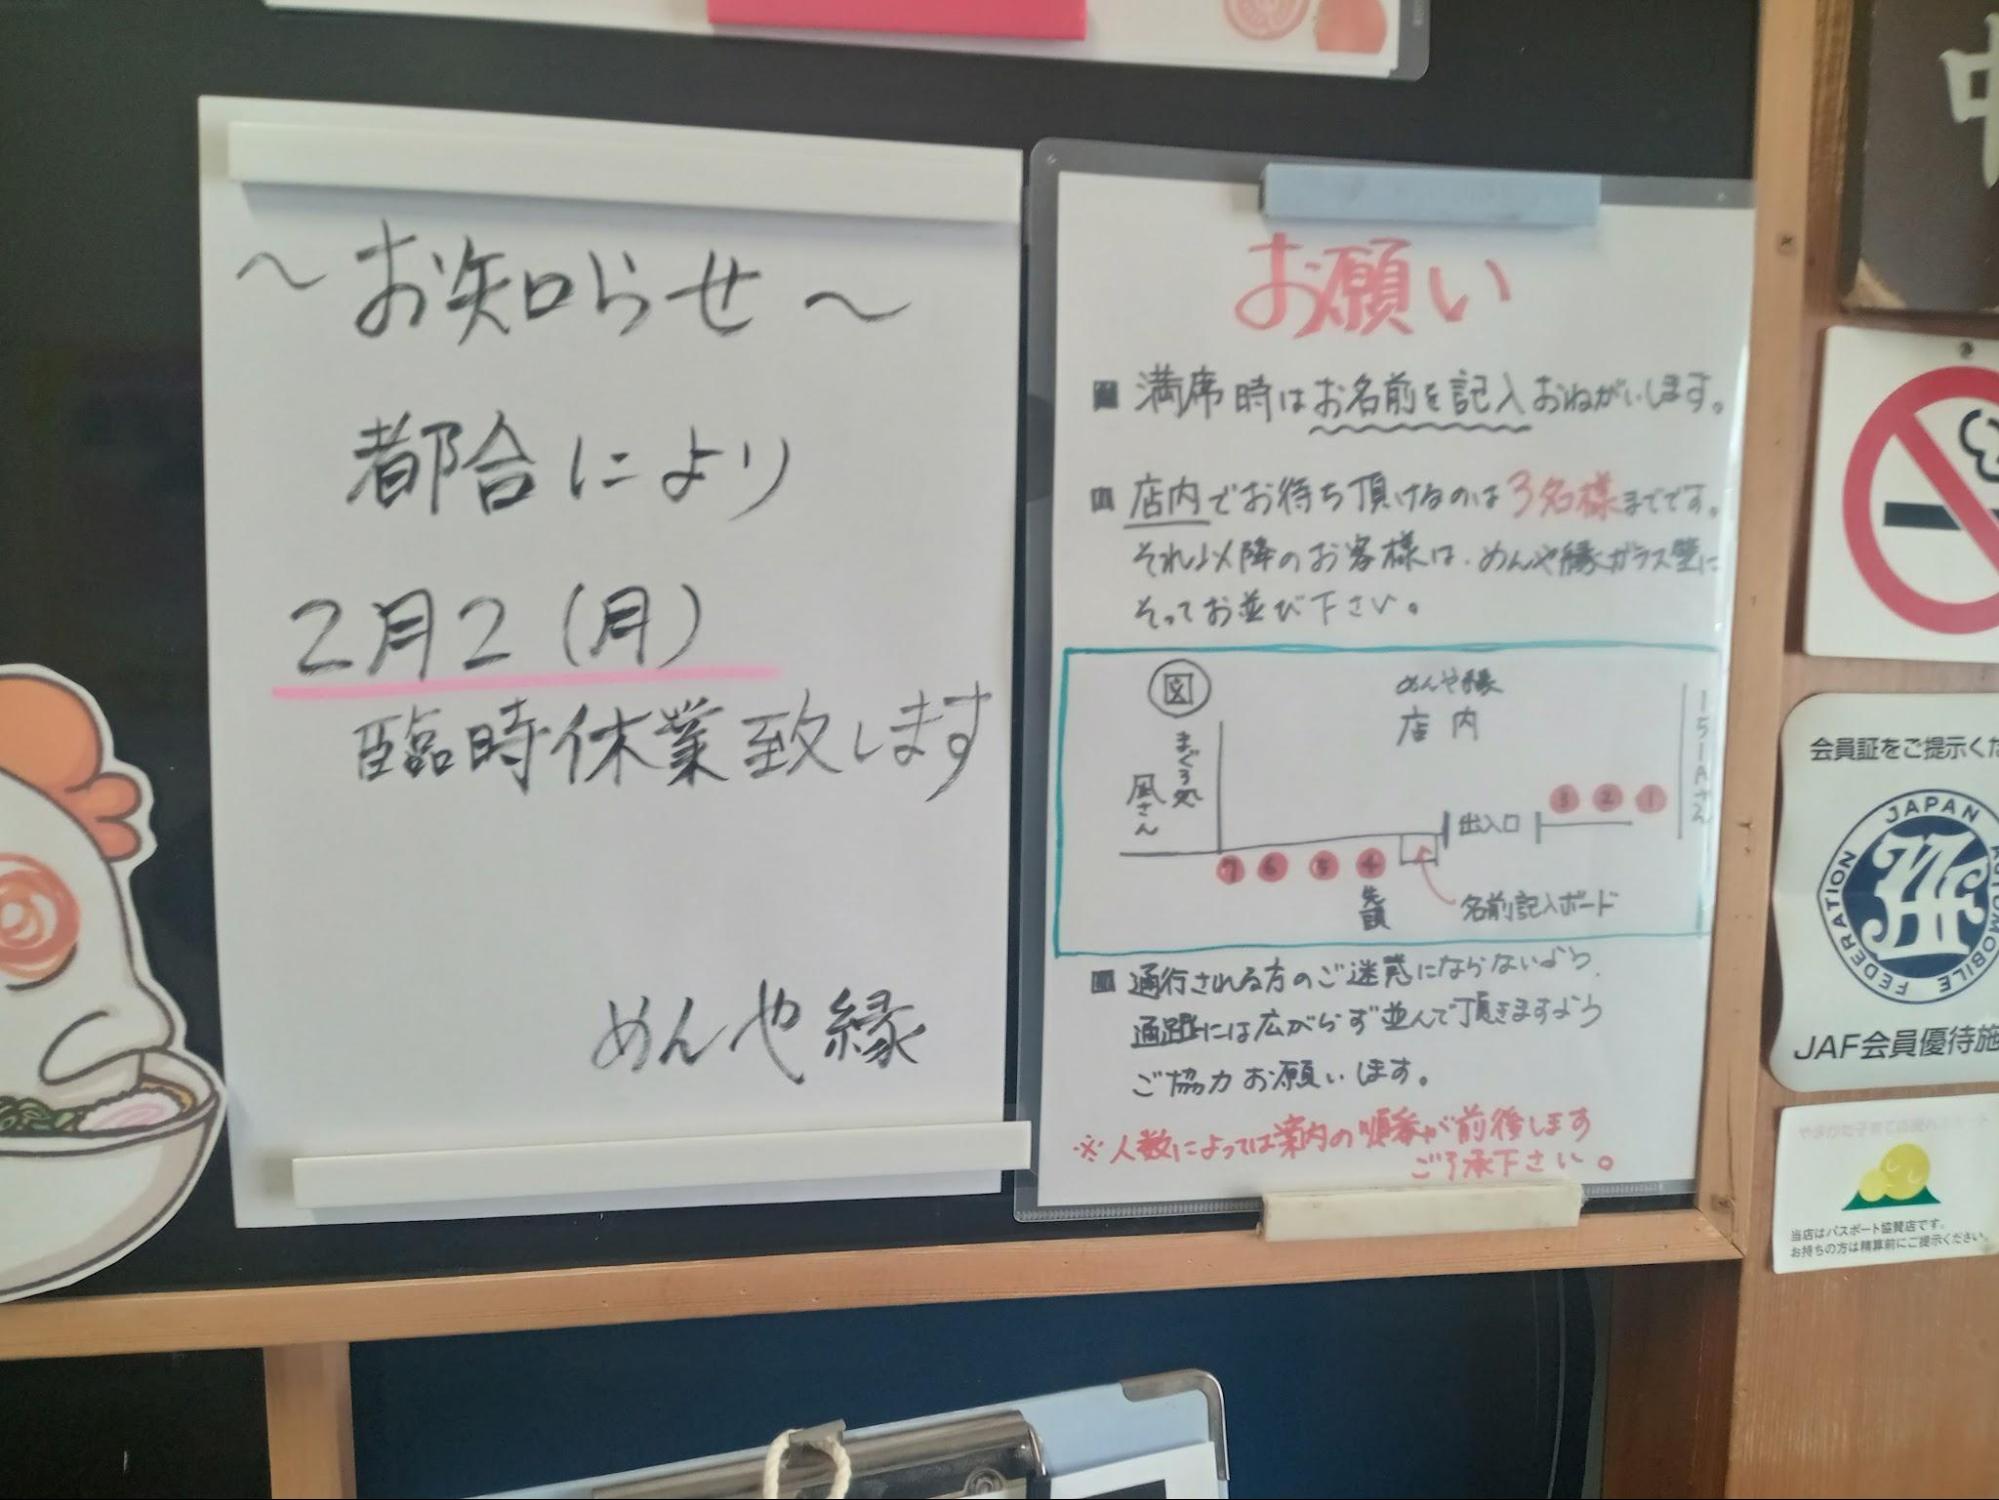 ~お知らせ~
都合により
2月2(月)
臨時休業致します
めんや縁
お願い
満席時はお名前を記入おねがいします。
店内でお待ち頂けるのは3名様までです。
それ以降のお客様は、めんや縁ガラス壁に
そってお並び下さい。
図
めんや縁
店内
まぐろ処
凪さん
151Aさん
出入口
3 2 1
7 6 5 4
先頭
名前記入ボード
通行される方のご迷惑にならないよう、
通路には広がらず並んで頂きますよう
ご協力お願いします。
※人数によっては案内の順番が前後します
ご了承下さい。
会員証をご提示くだ
JAPAN AUTOMOBILE FEDERATION
JAF会員優待施
当店はパスポート協賛店です。
お持ちの方は精算前にご提示ください。